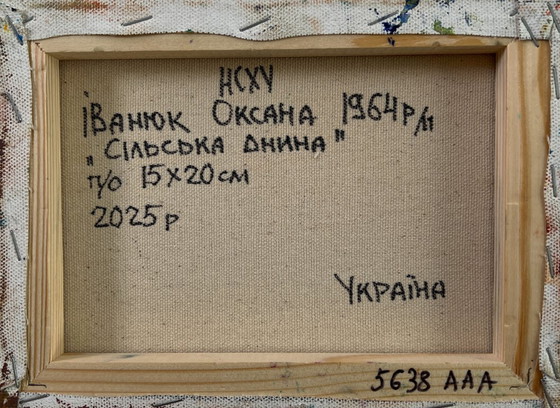 НСХУ
Іванюк Оксана 1964р/н
„Сільська днина"
п/о 15х20см
2025р
Україна
5638 ААА